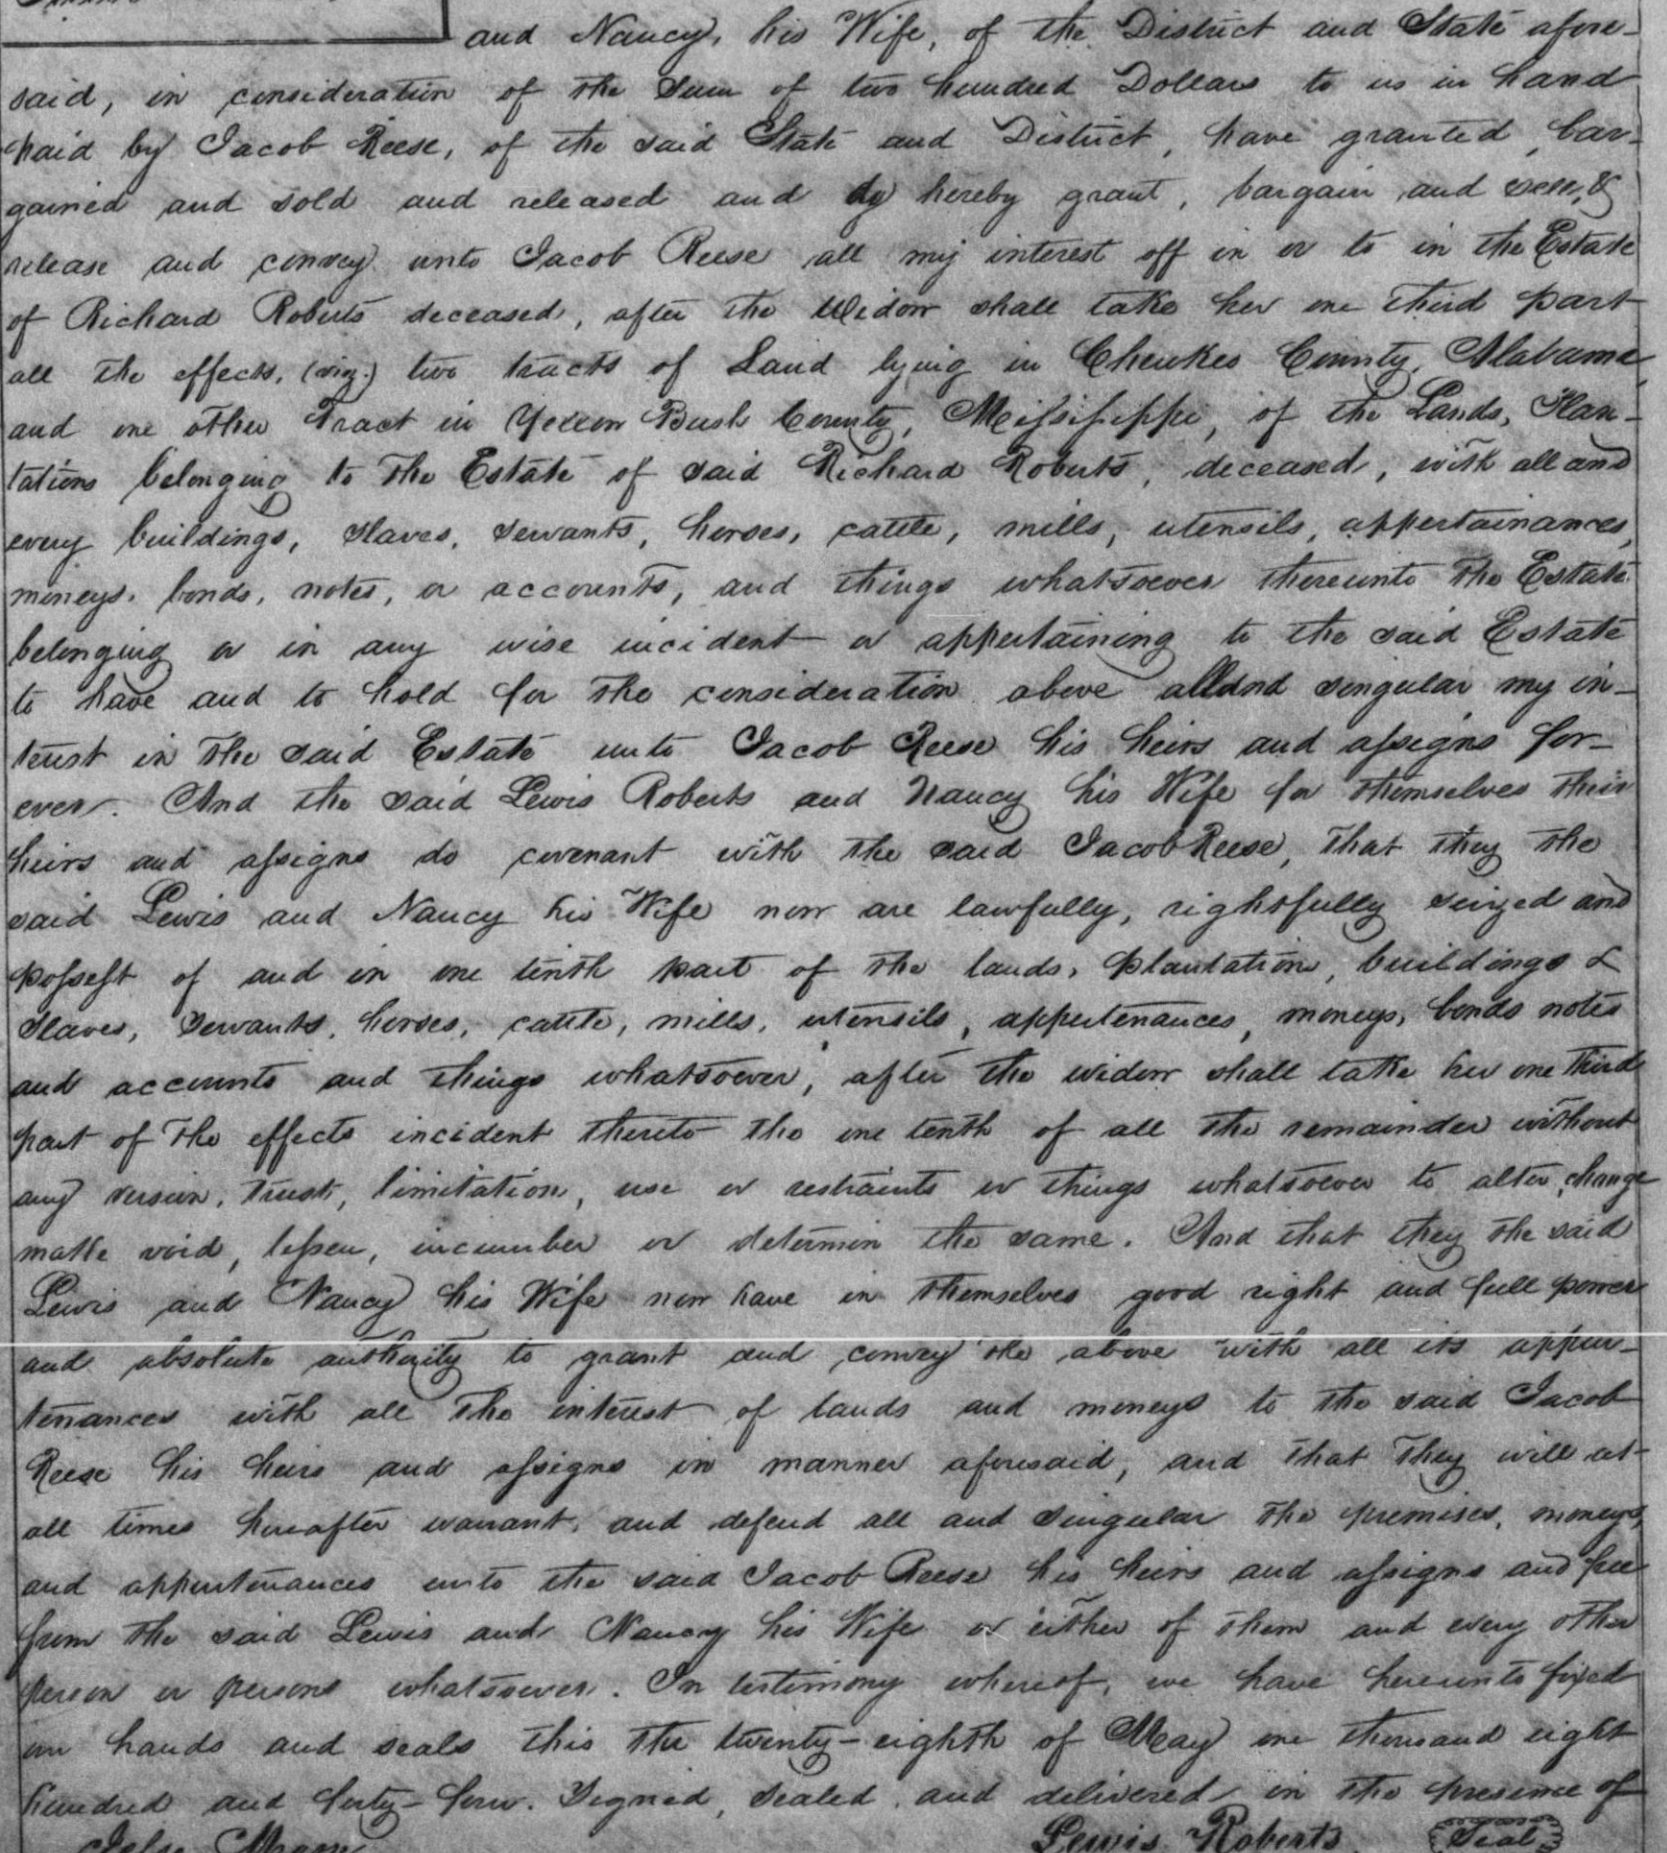 and Nancy, his Wife, of the District and State afore-
said, in consideration of the Sum of two hundred Dollars to us in hand
paid by Jacob Reese, of the said State and District, have granted, bar-
gained and sold and released and do hereby grant, bargain and sell, &
release and convey unto Jacob Reese all my interest off in or to in the Estate
of Richard Roberts deceased, after the Widow shall take her one third part
all the effects, (viz.) two tracts of Land lying in Cherokee County, Alabama,
and one other Tract in Yellow Bush County, Missisippi, of the Lands, Plan-
tations belonging to the Estate of said Richard Roberts, deceased, with all and
every buildings, slaves, servants, horses, cattle, mills, utensils, appertainances,
moneys, bonds, notes, or accounts, and things whatsoever thereunto the Estate
belonging or in any wise incident or appertaining to the said Estate
to have and to hold for the consideration above all and singular my in-
trust in the said Estate unto Jacob Reese his heirs and assigns for-
ever. And the said Lewis Roberts and Nancy his Wife for themselves their
heirs and assigns do covenant with the said Jacob Reese, that they the
said Lewis and Nancy his Wife now are lawfully, rightsfully seized and
possest of and in one tenth part of the lands, plantations, buildings &
slaves, servants, horses, cattle, mills, utensils, appertenances, moneys, bonds notes
and accounts and things whatsoever, after the widow shall take her one third
part of the effects incident thereto the one tenth of all the remainder without
any version, trust, limitation, use or restraints or things whatsoever to alter, change
make void, lessen, incumber or determin the same. And that they the said
Lewis and Nancy his Wife now have in themselves good right and full power
and absolute authority to grant and convey the above with all its appur-
tenances with all the interest of lands and moneys to the said Jacob
Reese his heirs and assigns in manner aforesaid, and that they will at
all times hereafter warrant, and defend all and singular the premises, moneys,
and appurtenances unto the said Jacob Reese his heirs and assigns and free
from the said Lewis and Nancy his Wife or either of them and every other
person or persons whatsoever. In testimony whereof, we have hereunto fixed
our hands and seals this the twenty-eighth of May one thousand eight
hundred and forty-four. Signed, sealed, and delivered in the presence of
Lewis Roberts Seal